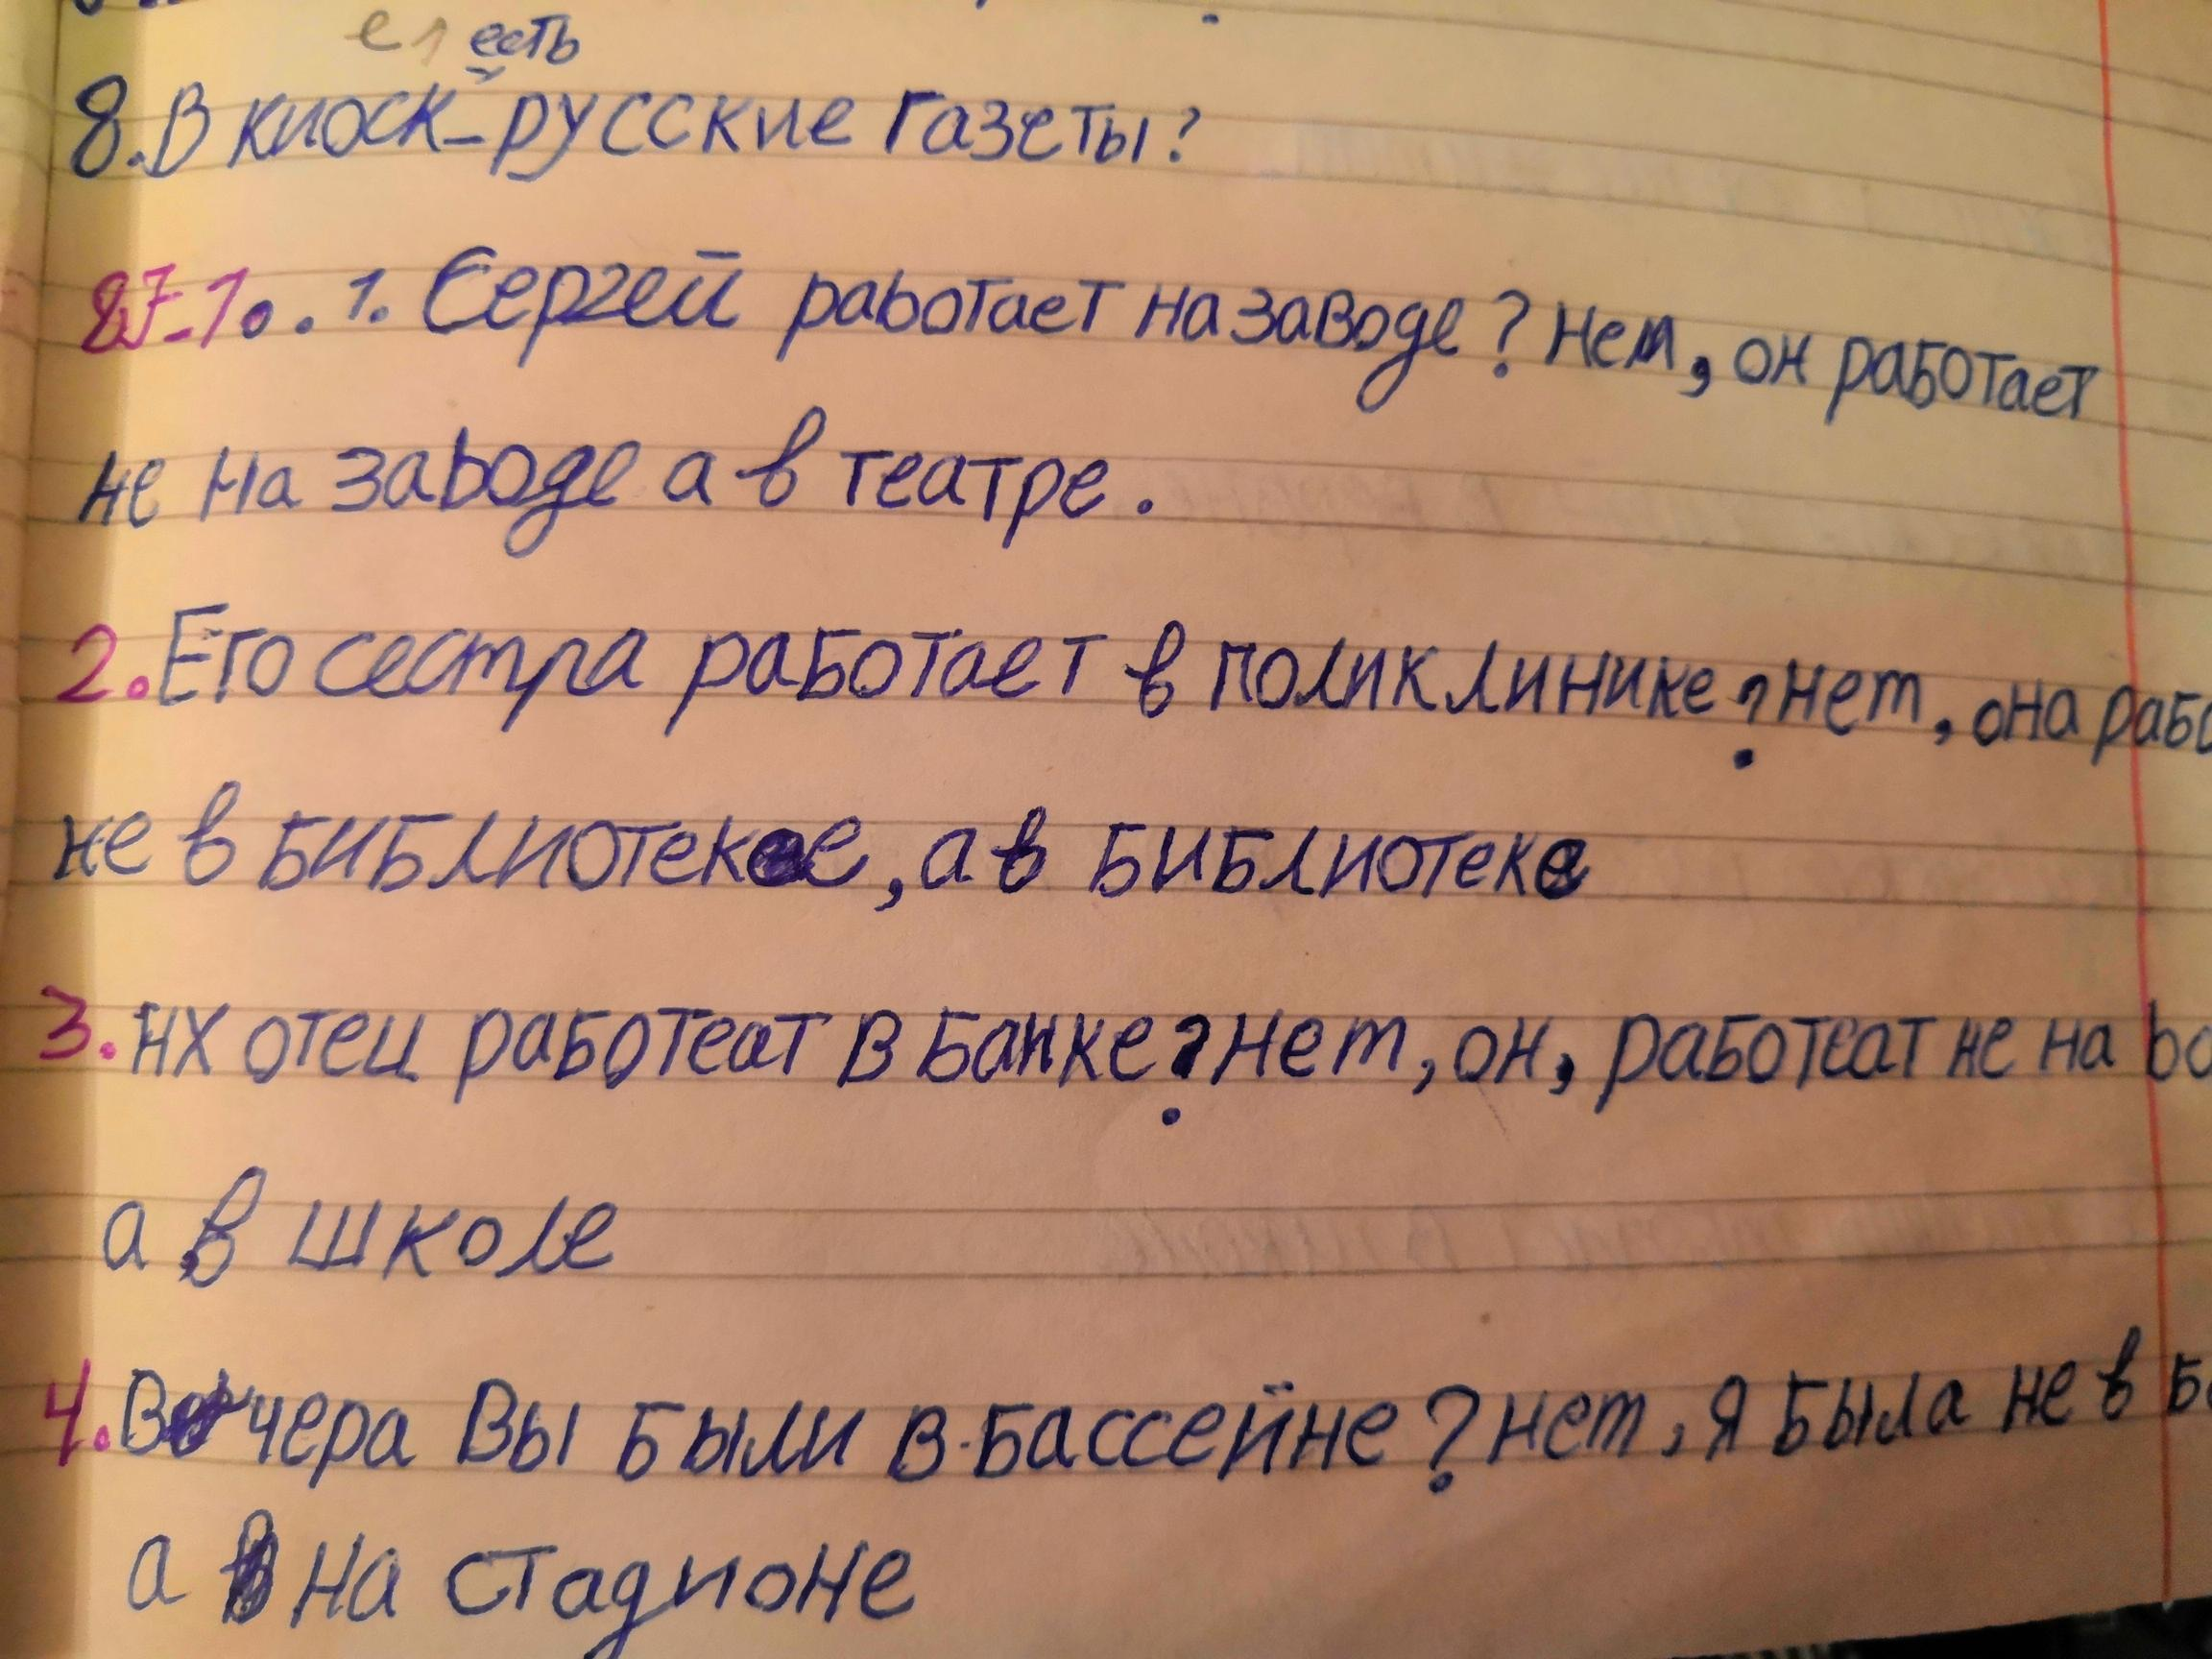 есть
8. В киоск_ русские газеты?
87-1. . 1. Сергей работает на заводе? Нет, он работает
не на заводе а в театре.
2. Его сестра работает в поликлинике? нет, она рабо
не в библиотеке, а в библиотеке
3. Их отец работеат в банке? нет, он, работеат не на
а в школе
4. Вчера Вы были в бассейне? нет, я была не в
а на стадионе